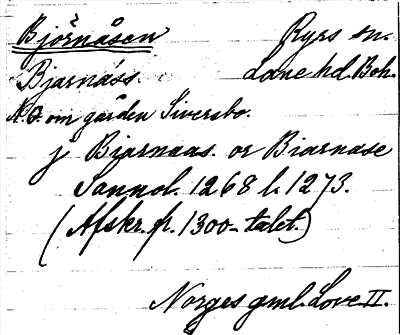 Björnåsen Ryrs sn.
Bjarnáss. Lane hd. Boh.
N.O. om gården Siversbo.
j Biarnaas. or Biarnase
Sannol. 1268 l. 1273.
(Afskr. fr. 1300-talet.)
Norges gml. Love II.